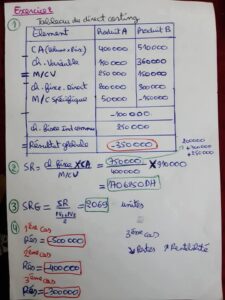 Exercice 2
① Tableau de direct costing
Element Produit A Produit B
CA (
400 000 510 000
ch. Variable 150 000 360000
= M/CV 250 000 150 000
- ch. fixe. Direct 200 000 300 000
= M/C Spécifique 50000 -150 000
-100 000
- ch. fixe Indirect 250 000
= Résultat globale -350 000
200000
+300000
+250000
② SR = ch fixe × CA / M/CV = 750 000 / 400000 × 910000
= 1706250 DH
③ SRG = SR / = 2069 unités
④ 1ère cas
Rés = -500 000
2ème cas
Rés = -400 000
3ème cas
Rés = -300000
3ème cas
↘ Pertes ↗ Rentabilité